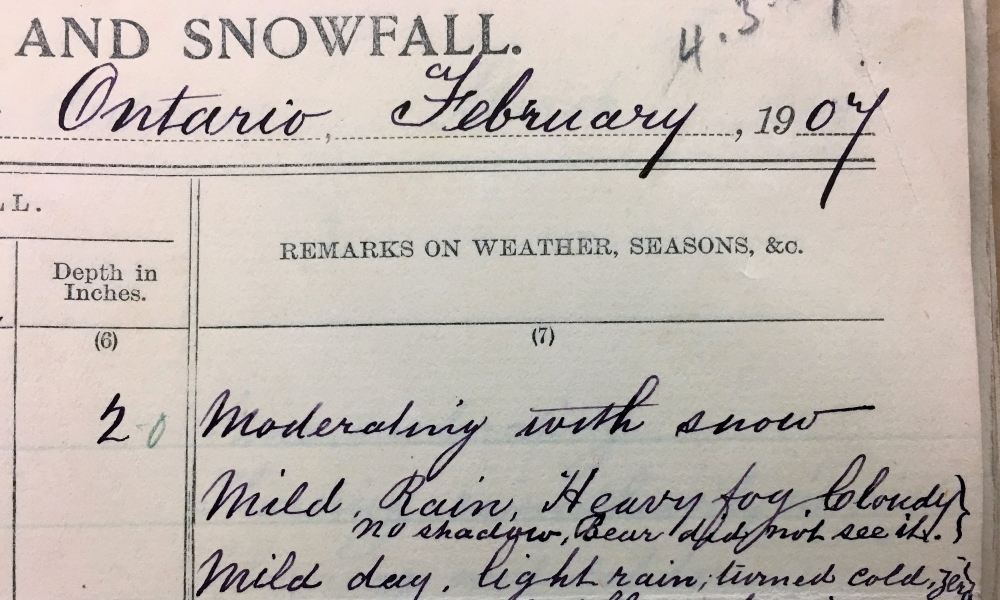 AND SNOWFALL.
4.3.
Ontario, February, 1907
LL.
REMARKS ON WEATHER, SEASONS, &c.
Depth in
Inches.
(6) (7)
2 0 Moderating with snow
Mild, Rain, Heavy fog, Cloudy
No shadow, Bear did not see it.
Mild day, light rain; turned cold,